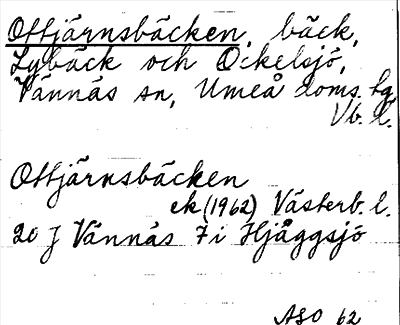 Ottjärnsbäcken, bäck,
Lybäck och Ockelsjö,
Vännäs sn, Umeå doms. lg
Vb. l.
Ottjärnsbäcken
ek (1962) Västerb. l.
20 J Vännäs 7 i Hjåggsjö
ASO 62